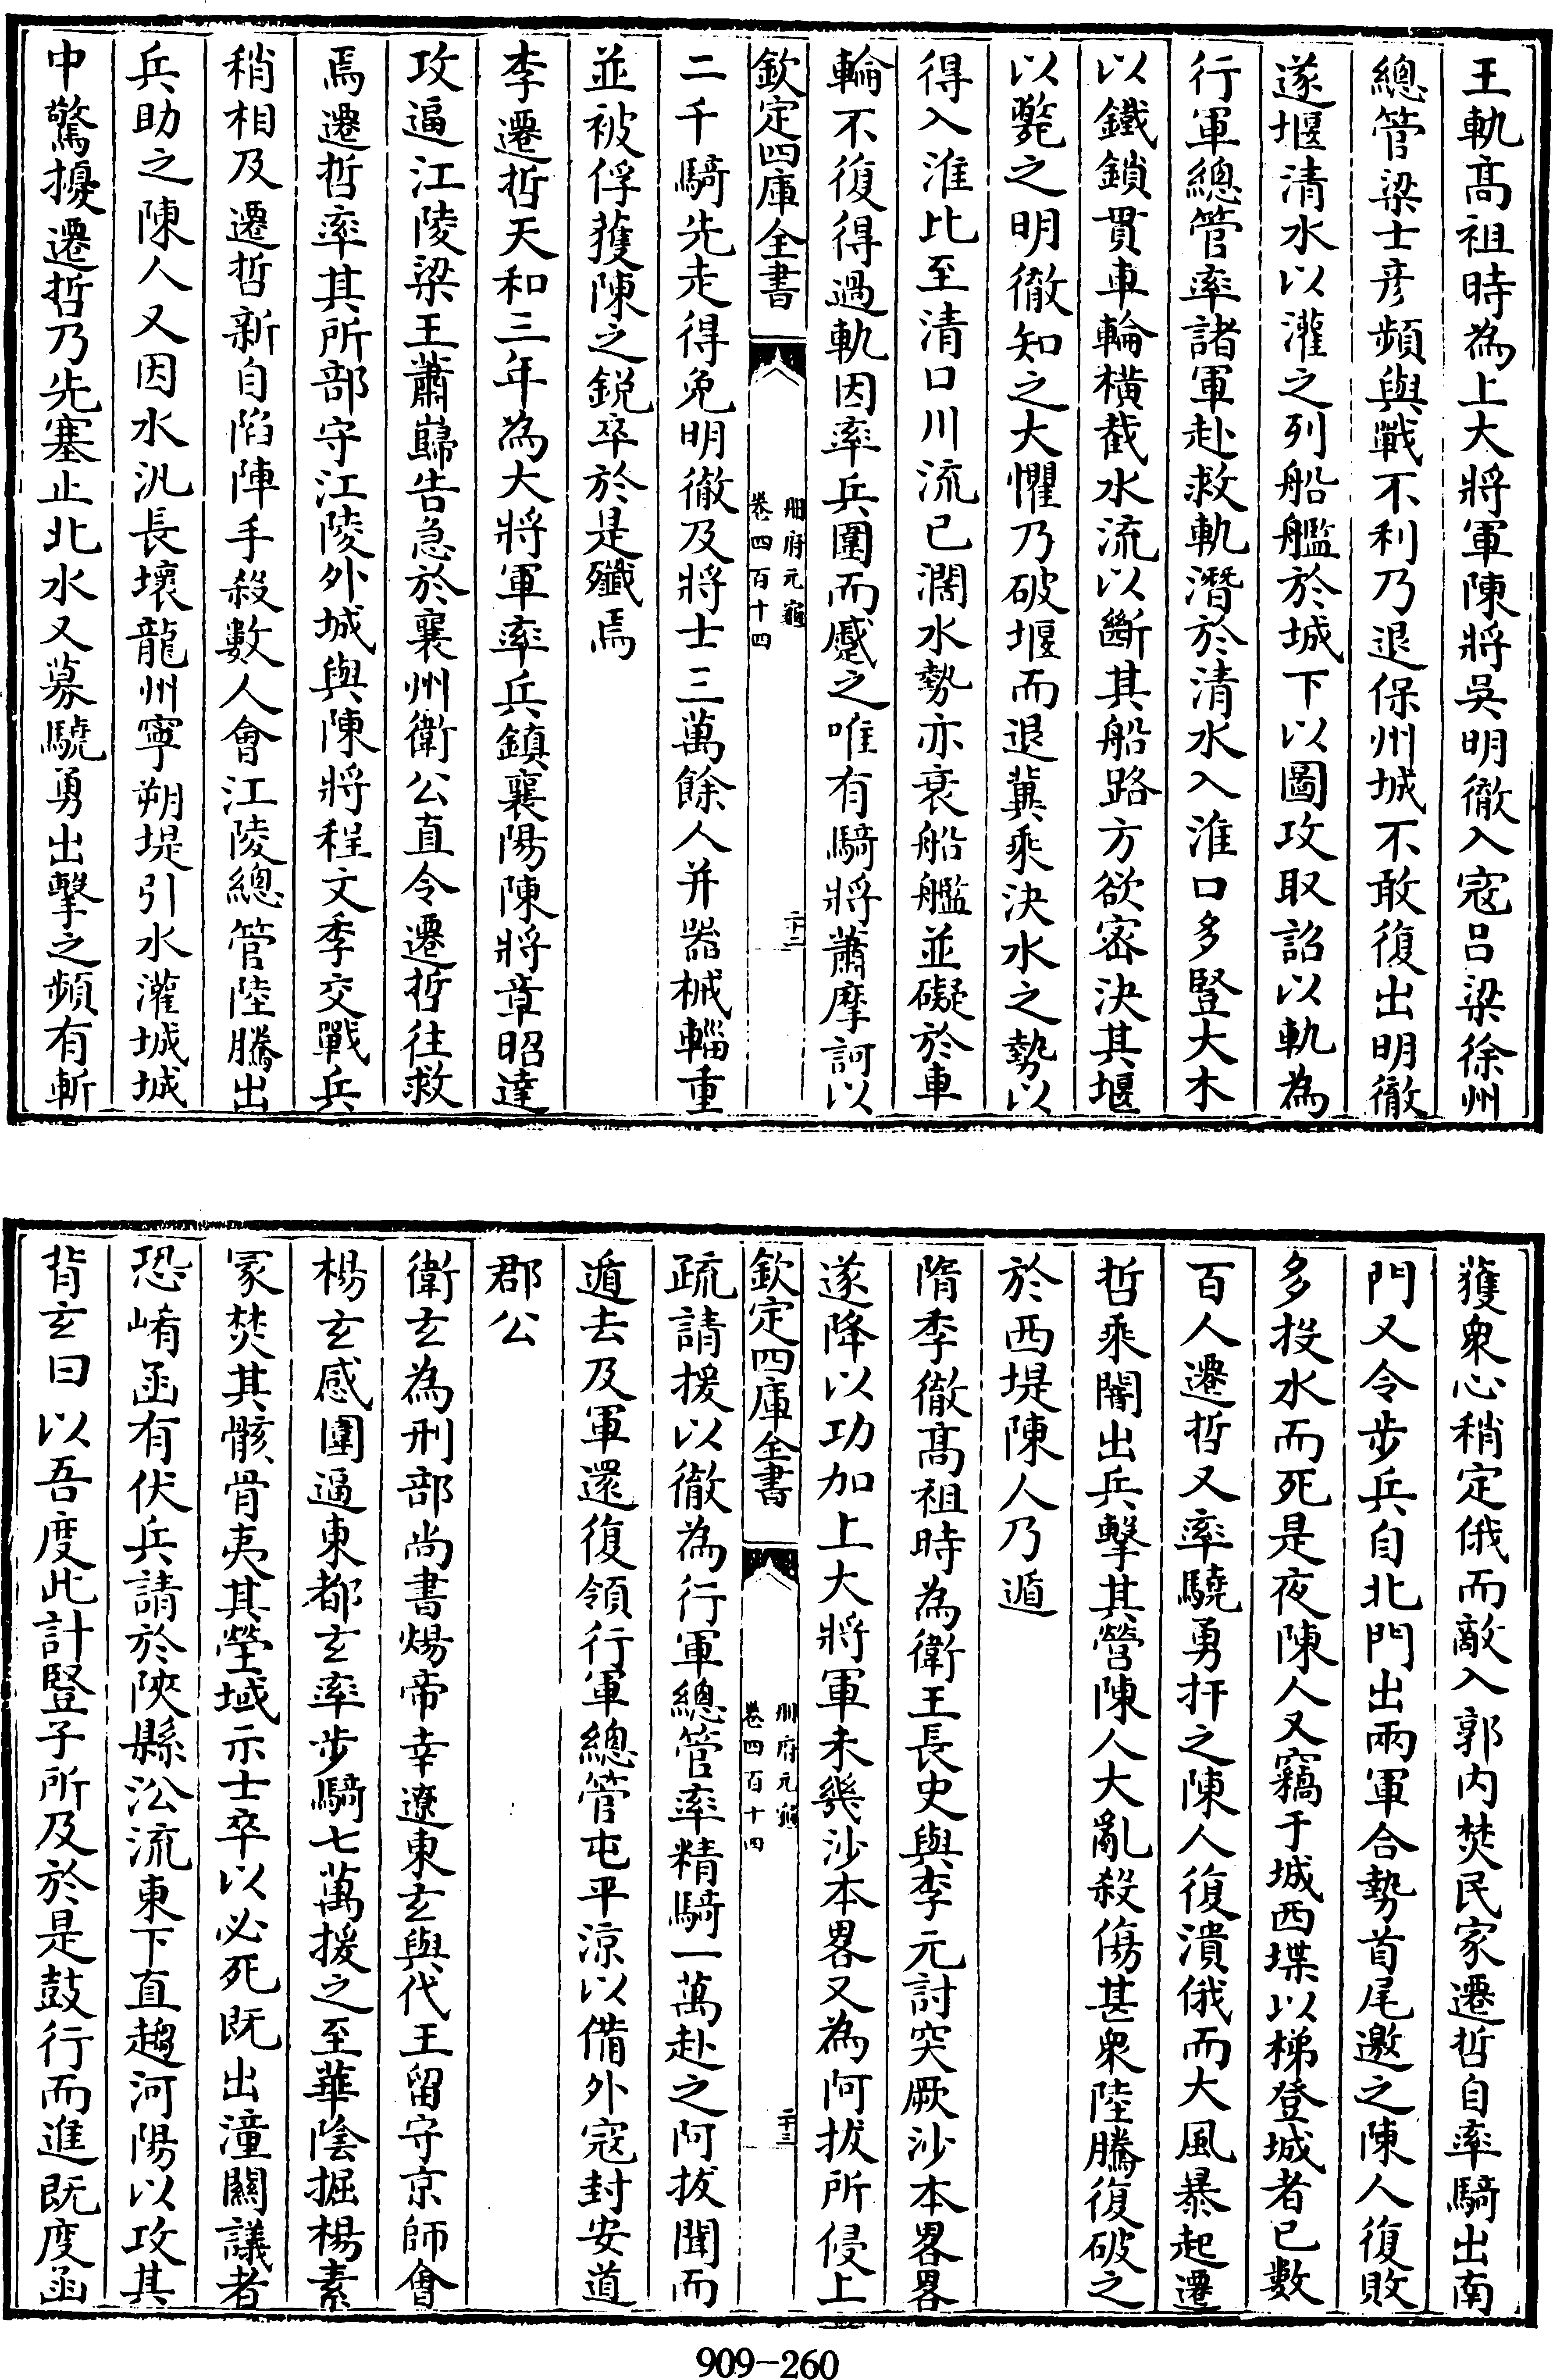 王軌髙祖時為上大將軍陳將吳明徹入寇吕梁徐州
總管梁士彥頻與戰不利乃退保州城不敢復出明徹
遂堰清水以灌之列船艦於城下以圖攻取詔以軌為
行軍總管率諸軍赴救軌潛於清水入淮口多豎大木
以鐵鎖貫車輪橫截水流以斷其船路方欲密決其堰
以斃之明徹知之大懼乃破堰而退冀乘決水之勢以
得入淮比至清口川流已濶水勢亦衰船艦並礙於車
輪不復得過軌因率兵圍而蹙之唯有騎將蕭摩訶以
欽定四庫全書
冊府元龜
卷四百十四
二十二
二千騎先走得免明徹及將士三萬餘人并器械輜重
並被俘獲陳之銳卒於是殲焉
李遷哲天和三年為大將軍率兵鎮襄陽陳將章昭達
攻逼江陵梁王蕭巋告急於襄州衛公直令遷哲往救
焉遷哲率其所部守江陵外城與陳將程文季交戰兵
稍相及遷哲新自陷陣手殺數人會江陵總管陸騰出
兵助之陳人又因水汎長壞龍州寧朔堤引水灌城城
中驚擾遷哲乃先塞止北水又募驍勇出擊之頻有斬
獲衆心稍定俄而敵入郭内焚民家遷哲自率騎出南
門又令步兵自北門出兩軍合勢首尾邀之陳人復敗
多投水而死是夜陳人又竊于城西堞以梯登城者已數
百人遷哲又率驍勇扞之陳人復潰俄而大風暴起遷
哲乘闇出兵擊其營陳人大亂殺傷甚衆陸騰復破之
於西堤陳人乃遁
隋李徹髙祖時為衛王長史與李元討突厥沙本畧畧
遂降以功加上大將軍未幾沙本畧又為阿拔所侵上
欽定四庫全書
冊府元龜
卷四百十四
二十三
疏請援以徹為行軍總管率精騎一萬赴之阿拔聞而
遁去及軍還復領行軍總管屯平涼以備外寇封安道
郡公
衛玄為刑部尚書煬帝幸遼東玄與代王留守京師會
楊玄感圍逼東都玄率步騎七萬援之至華陰掘楊素
冢焚其骸骨夷其塋域示士卒以必死既出潼關議者
恐崤函有伏兵請於陝縣沿流東下直趨河陽以攻其
背玄曰以吾度此計豎子所及於是鼓行而進既度函
909-260